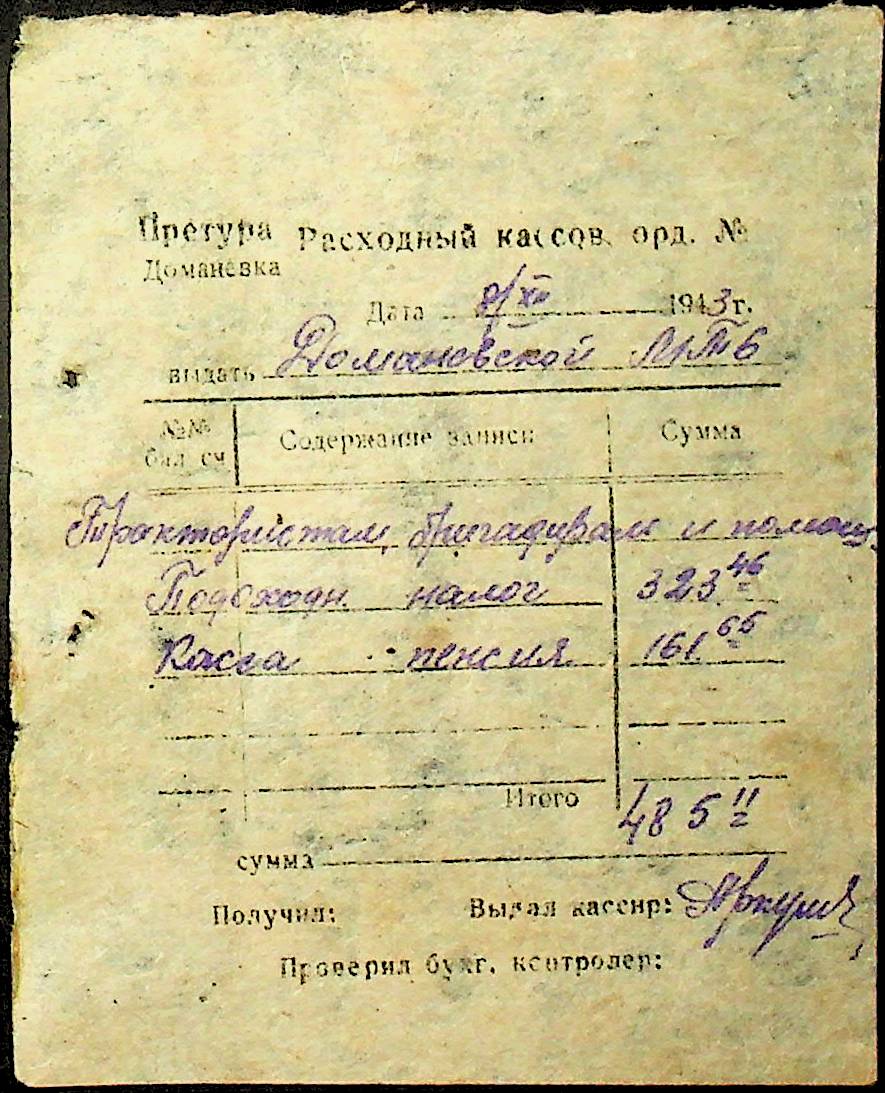 Претура Расходный кассов. орд. №
Доманевка
Дата 8/XII 1943 г.
выдать Домановской МТБ
№№ бал сч Содержание записи Сумма
Трактористам, бригадирам и помощ.
Подоходн налог 323 46
Касса пенсия 161 65
Итого 485 11
сумма
Получил: Выдал кассир:
Проверил бухг. контролер: